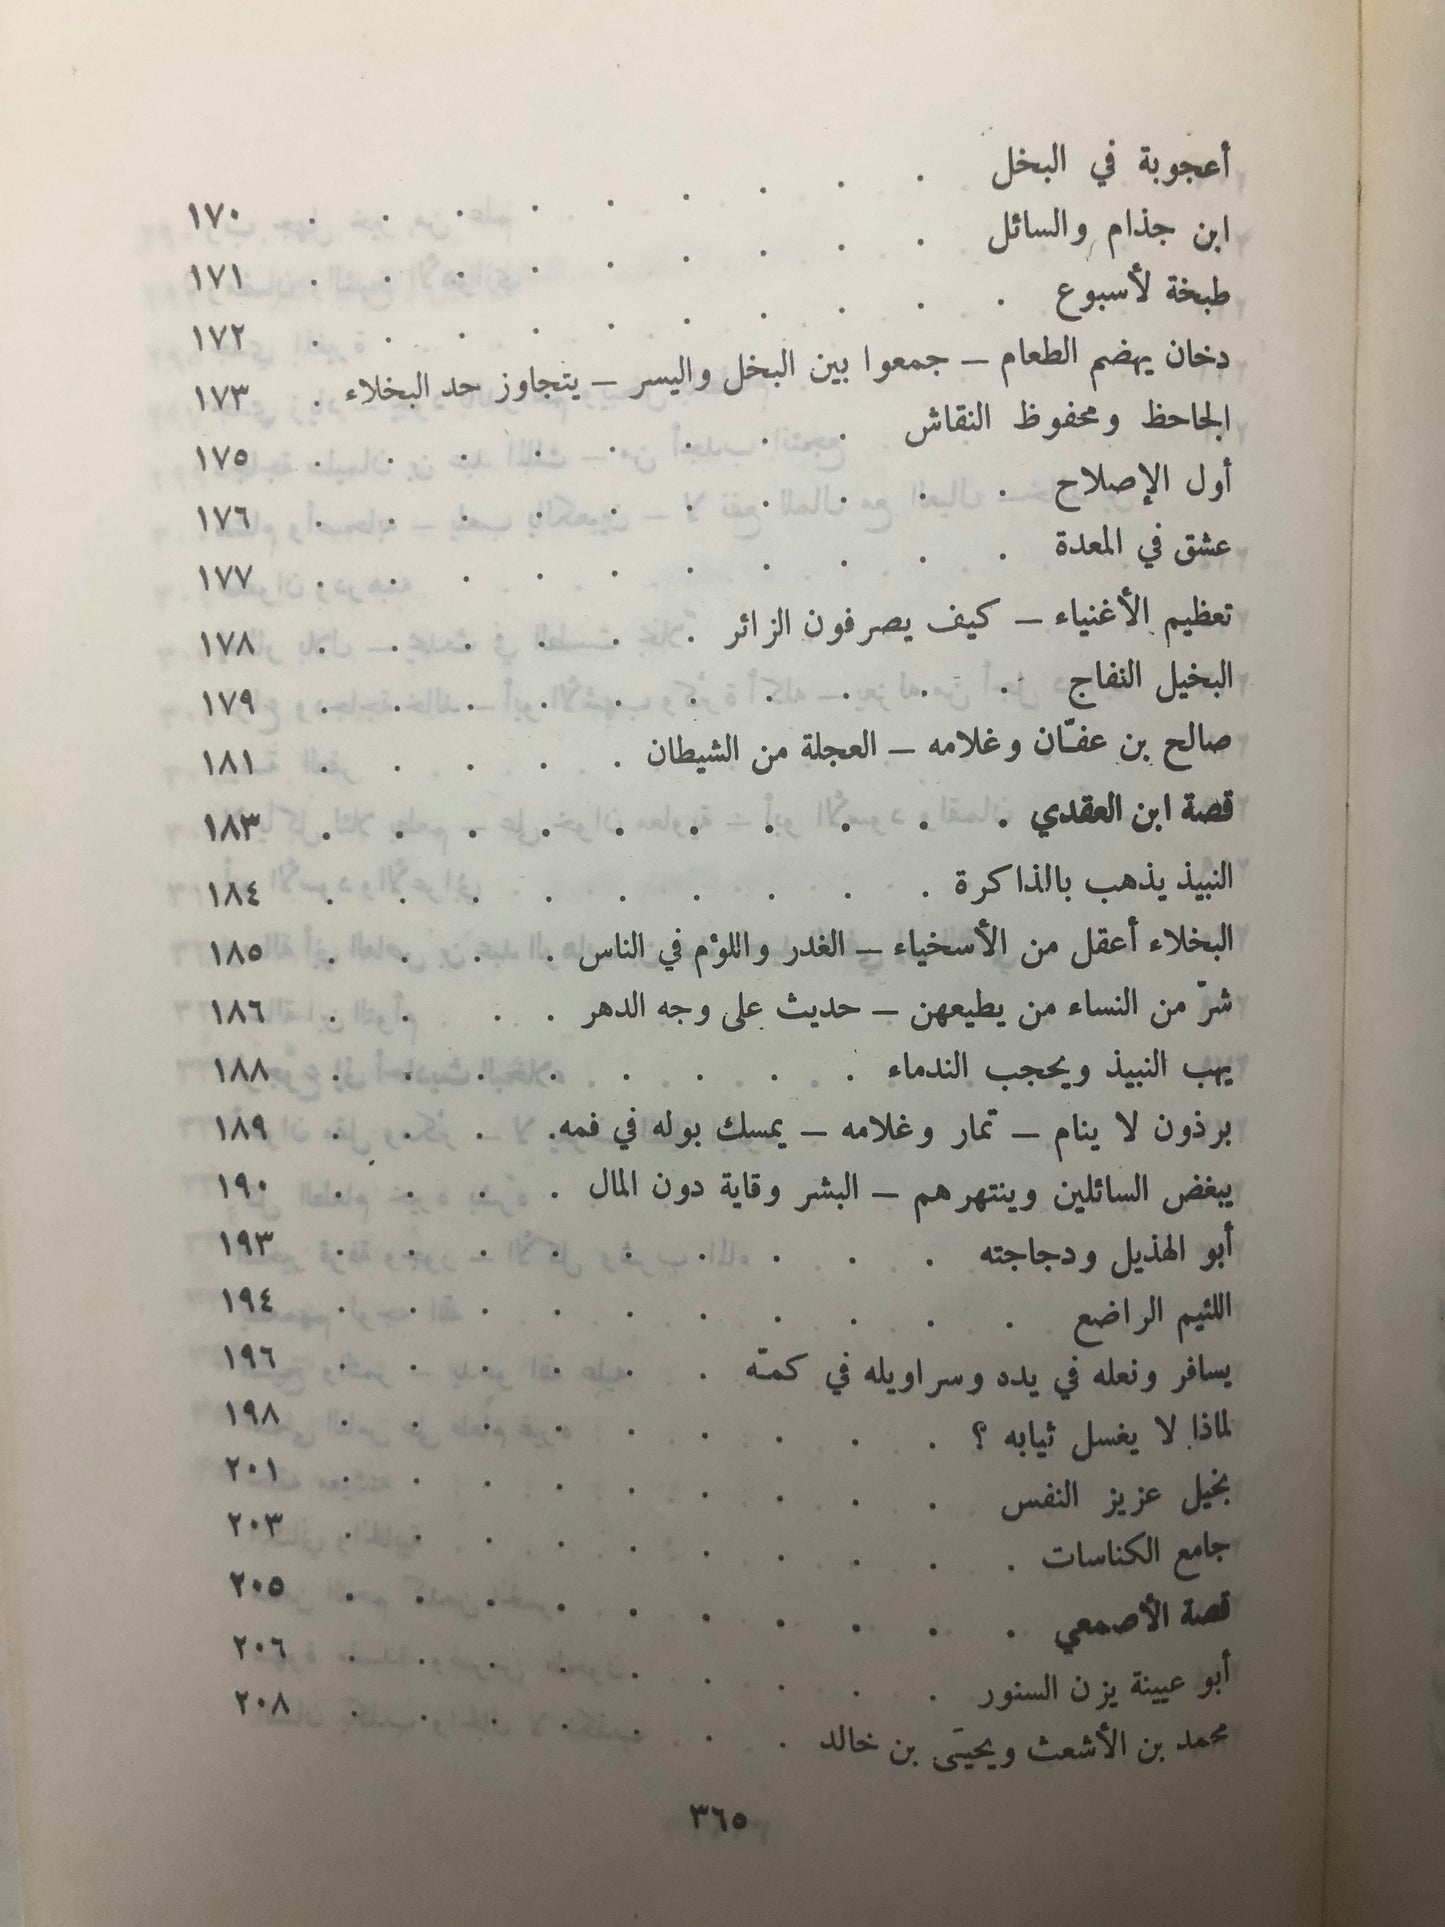 أعجوبة في البخل . . . . . . . . . ١٧٠
ابن جذام والسائل . . . . . . . . . ١٧١
طبخة لأسبوع . . . . . . . . . . ١٧٢
دخان يهضم الطعام – جمعوا بين البخل واليسر – يتجاوز حد البخلاء . ١٧٣
الجاحظ ومحفوظ النقاش . . . . . . . . ١٧٥
أول الإصلاح . . . . . . . . . . ١٧٦
عشق في المعدة . . . . . . . . . . ١٧٧
تعظيم الأغنياء – كيف يصرفون الزائر . . . . . . ١٧٨
البخيل النفاج . . . . . . . . . . ١٧٩
صالح بن عفّان وغلامه – العجلة من الشيطان . . . . . ١٨١
قصة ابن العقدي . . . . . . . . . . ١٨٣
النبيذ يذهب بالذاكرة . . . . . . . . . ١٨٤
البخلاء أعقل من الأسخياء – الغدر واللؤم في الناس . . . . ١٨٥
شرّ من النساء من يطيعهن – حديث على وجه الدهر . . . . ١٨٦
يهب النبيذ ويحجب الندماء . . . . . . . . ١٨٨
برذون لا ينام – تمار وغلامه – يمسك بوله في فمه. . . . ١٨٩
يبغض السائلين وينتهرهم – البشر وقاية دون المال . . . . ١٩٠
أبو الهذيل ودجاجته . . . . . . . . . ١٩٣
اللئيم الراضع . . . . . . . . . . ١٩٤
يسافر ونعله في يده وسراويله في كمّه . . . . . . ١٩٦
لماذا لا يغسل ثيابه ؟ . . . . . . . . . ١٩٨
بخيل عزيز النفس . . . . . . . . . ٢٠١
جامع الكناسات . . . . . . . . . . ٢٠٣
قصة الأصمعي . . . . . . . . . . ٢٠٥
أبو عيينة يزن السنور . . . . . . . . . ٢٠٦
محمد بن الأشعث ويحيى بن خالد . . . . . . . ٢٠٨
٣٦٥